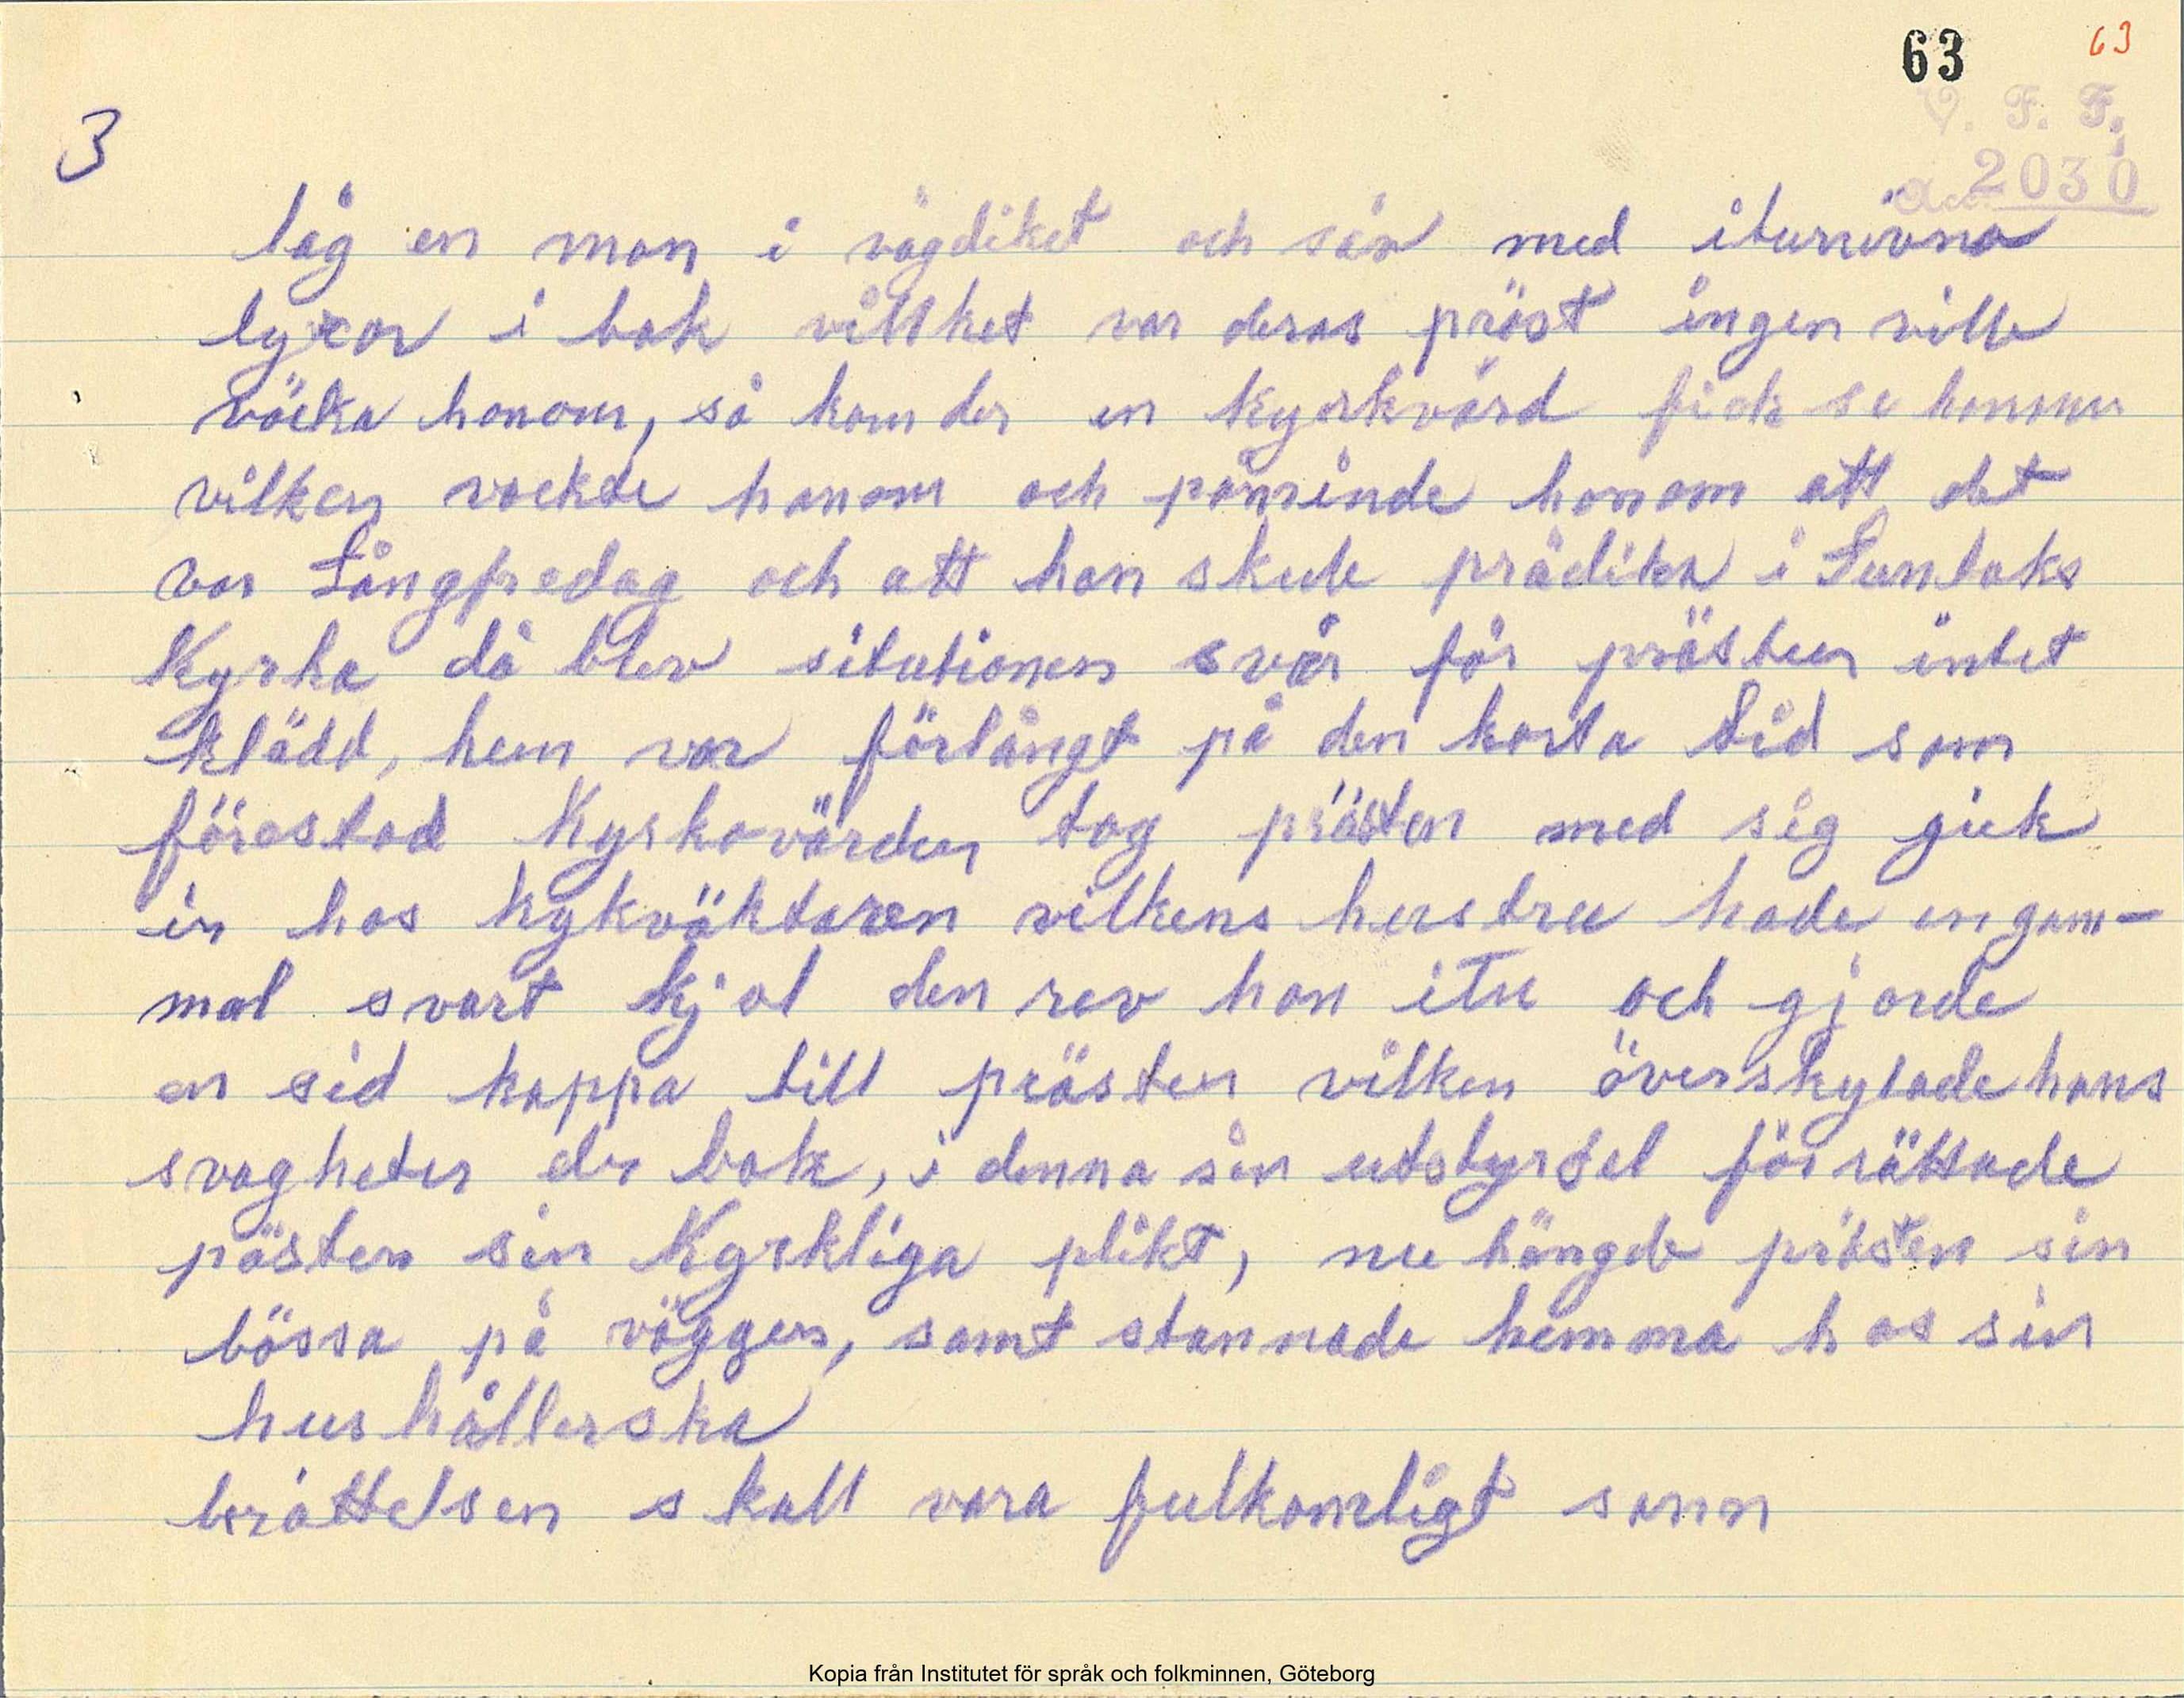 63 63
V. F. F.
Acc. 2030
3
låg en man i vägdiket och såv med iturivna
byxor i bak villket var deras präst ingen ville
väcka honom, så kom der en kyrkvärd fick se honom
vilken vackde honom och påminde honom att det
var Långfredag och att han skule prädika i Suntaks
Kyrka då blev situtionen svår för prästen intet
klädd, hem var förlångt på den korta tid som
förestod Kyrkovärden tog prästen med sig gick
in hos kykväktaren vilkens hustru hade en gam-
mal svart kjol den rev hon itu och gjorde
en sid kappa till prästen vilken överskylade hans
svagheter der bak, i denna sin utstyrsel förrättade
pästen sin Kyrkliga plikt, nu hängde prästen sin
bössa på väggen, samt stannade hemma hos sin
hushållerska
berättelsen skall vara fulkomligt sann
Kopia från Institutet för språk och folkminnen, Göteborg